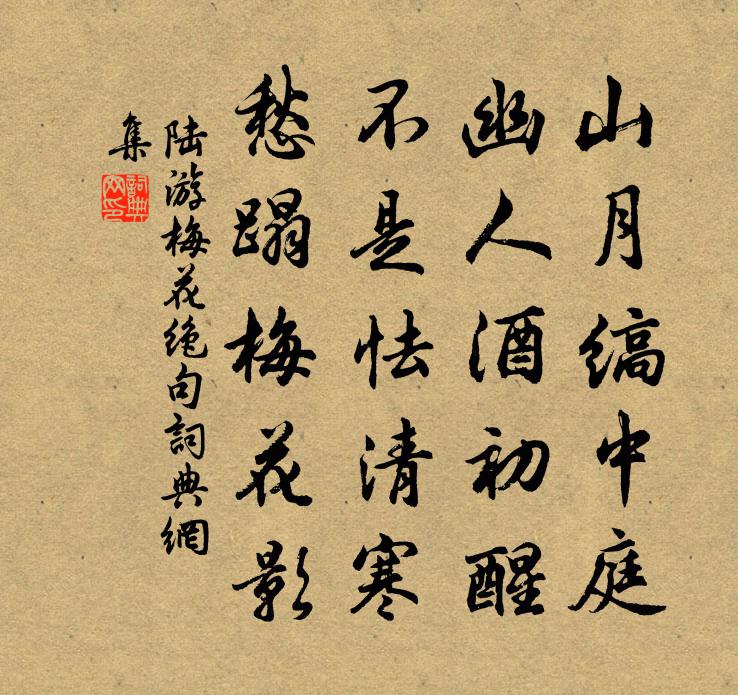 山月缟中庭
幽人酒初醒
不是怯清寒
愁蹋梅花影
陆游梅花绝句詞典網
集
詞典
网印